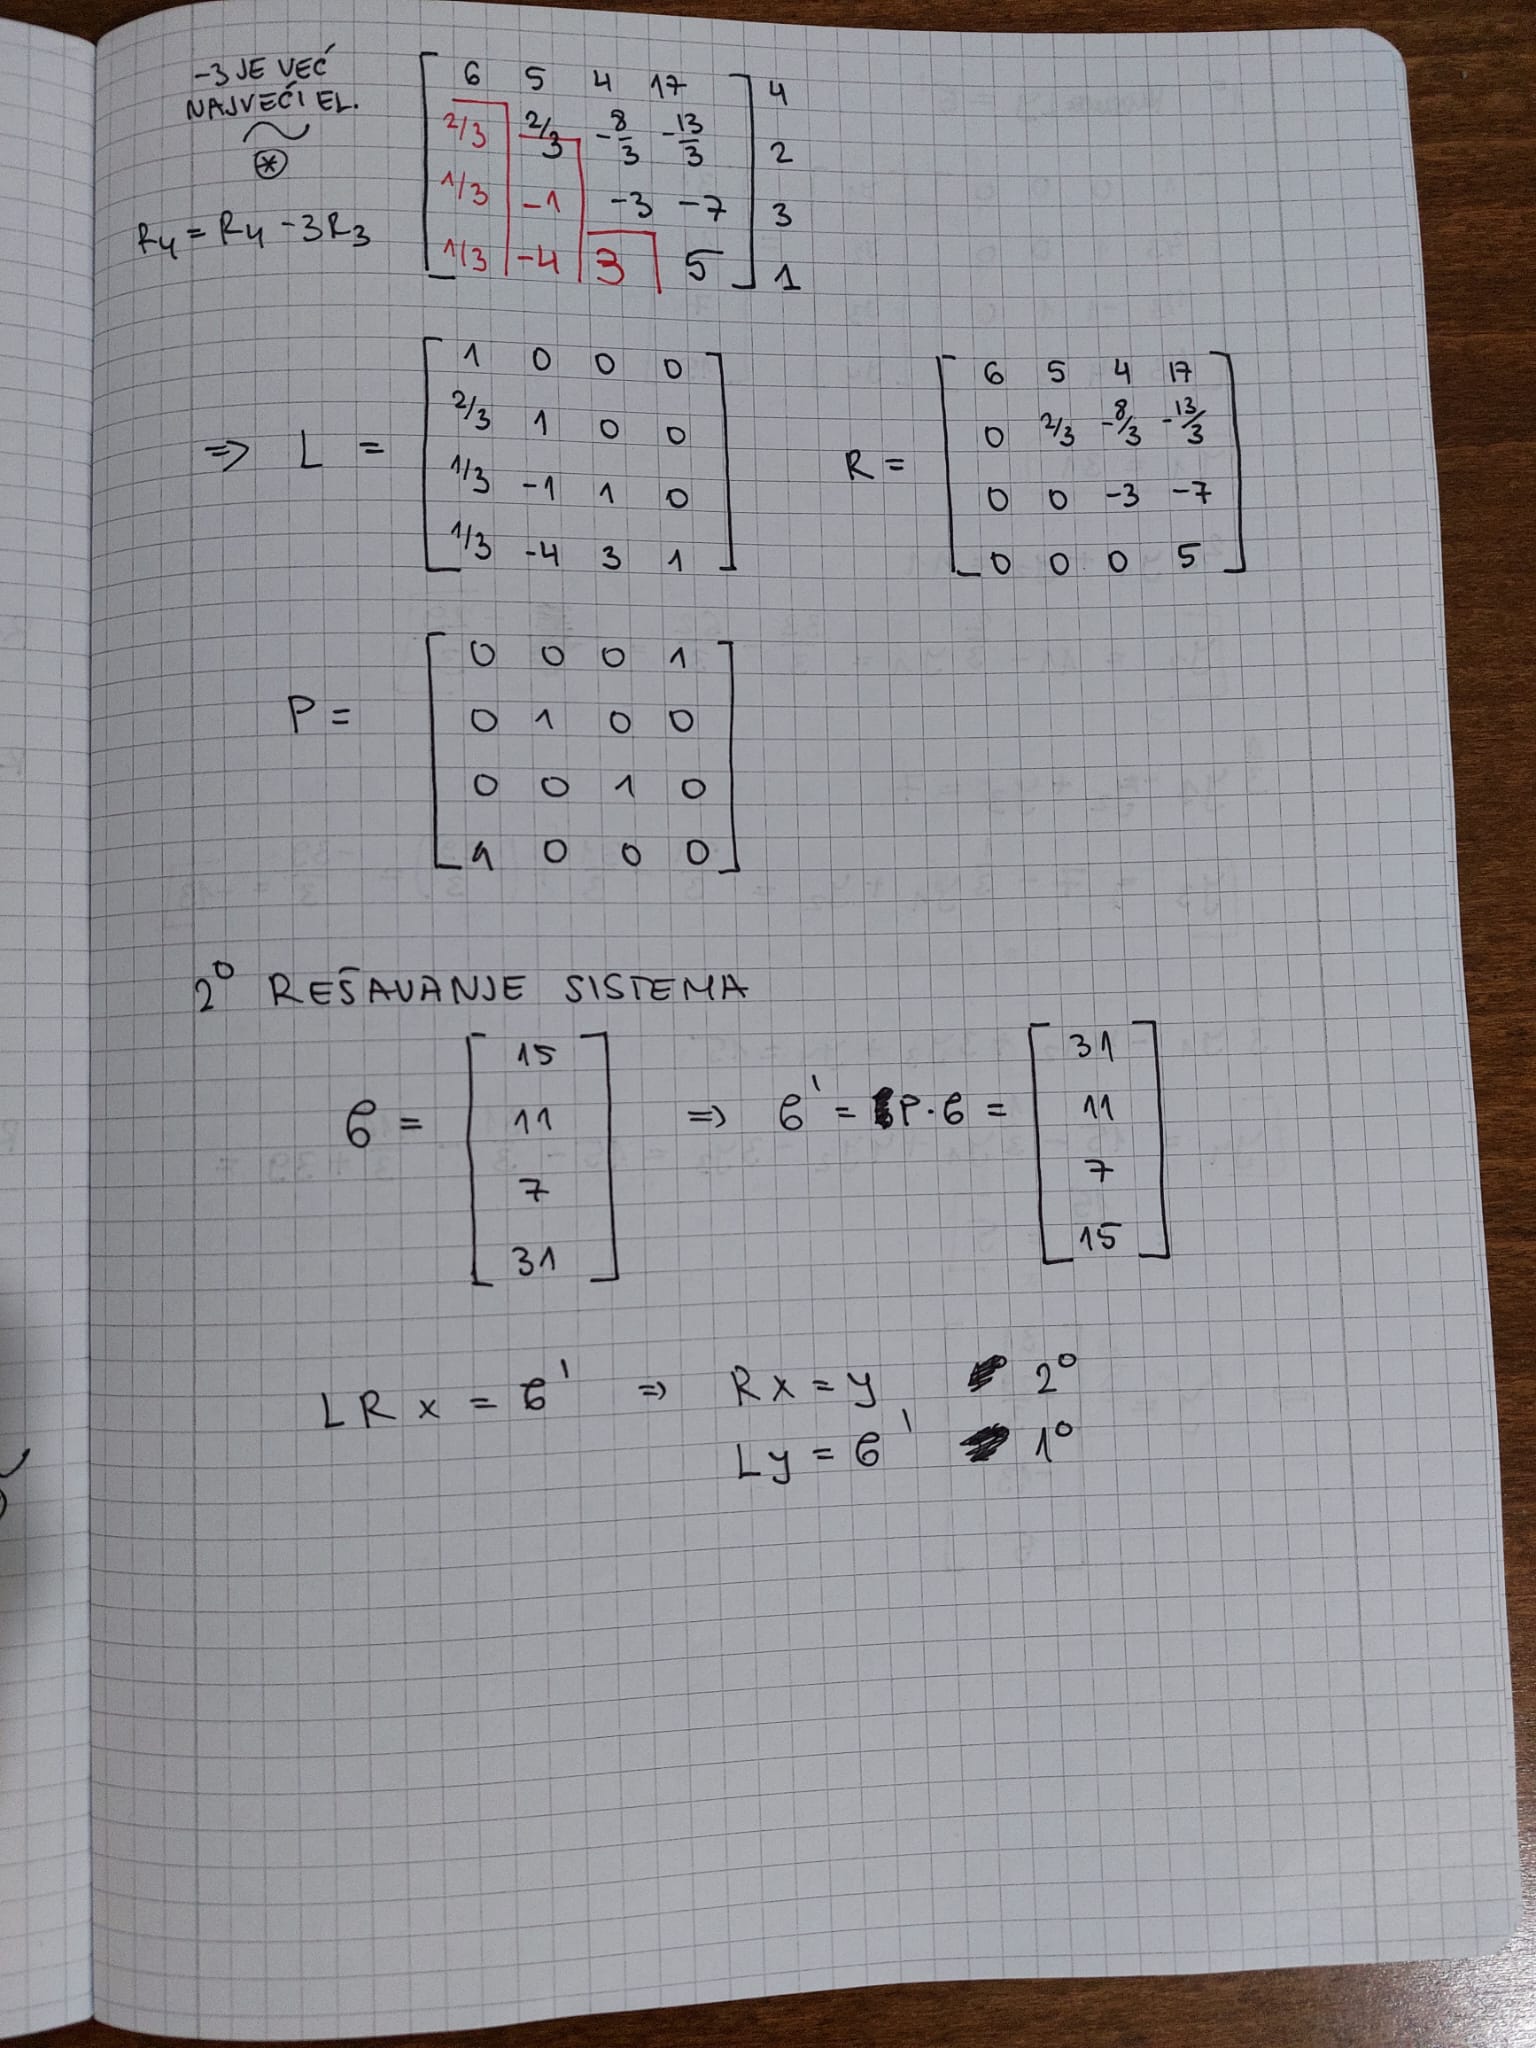 -3 JE VEĆ
NAJVEĆI EL.
~
⊛
R4 = R4 - 3R3
6 5 4 17 4
2/3 2/3 -8/3 -13/3 2
1/3 -1 -3 -7 3
1/3 -4 3 5 1
⇒ L =
1 0 0 0
2/3 1 0 0
1/3 -1 1 0
1/3 -4 3 1
R =
6 5 4 17
0 2/3 -8/3 -13/3
0 0 -3 -7
0 0 0 5
P =
0 0 0 1
0 1 0 0
0 0 1 0
1 0 0 0
2° REŠAVANJE SISTEMA
б =
15
11
7
31
⇒ б' = P·б =
31
11
7
15
LRx = б' ⇒ Rx = y 2°
Ly = б' 1°